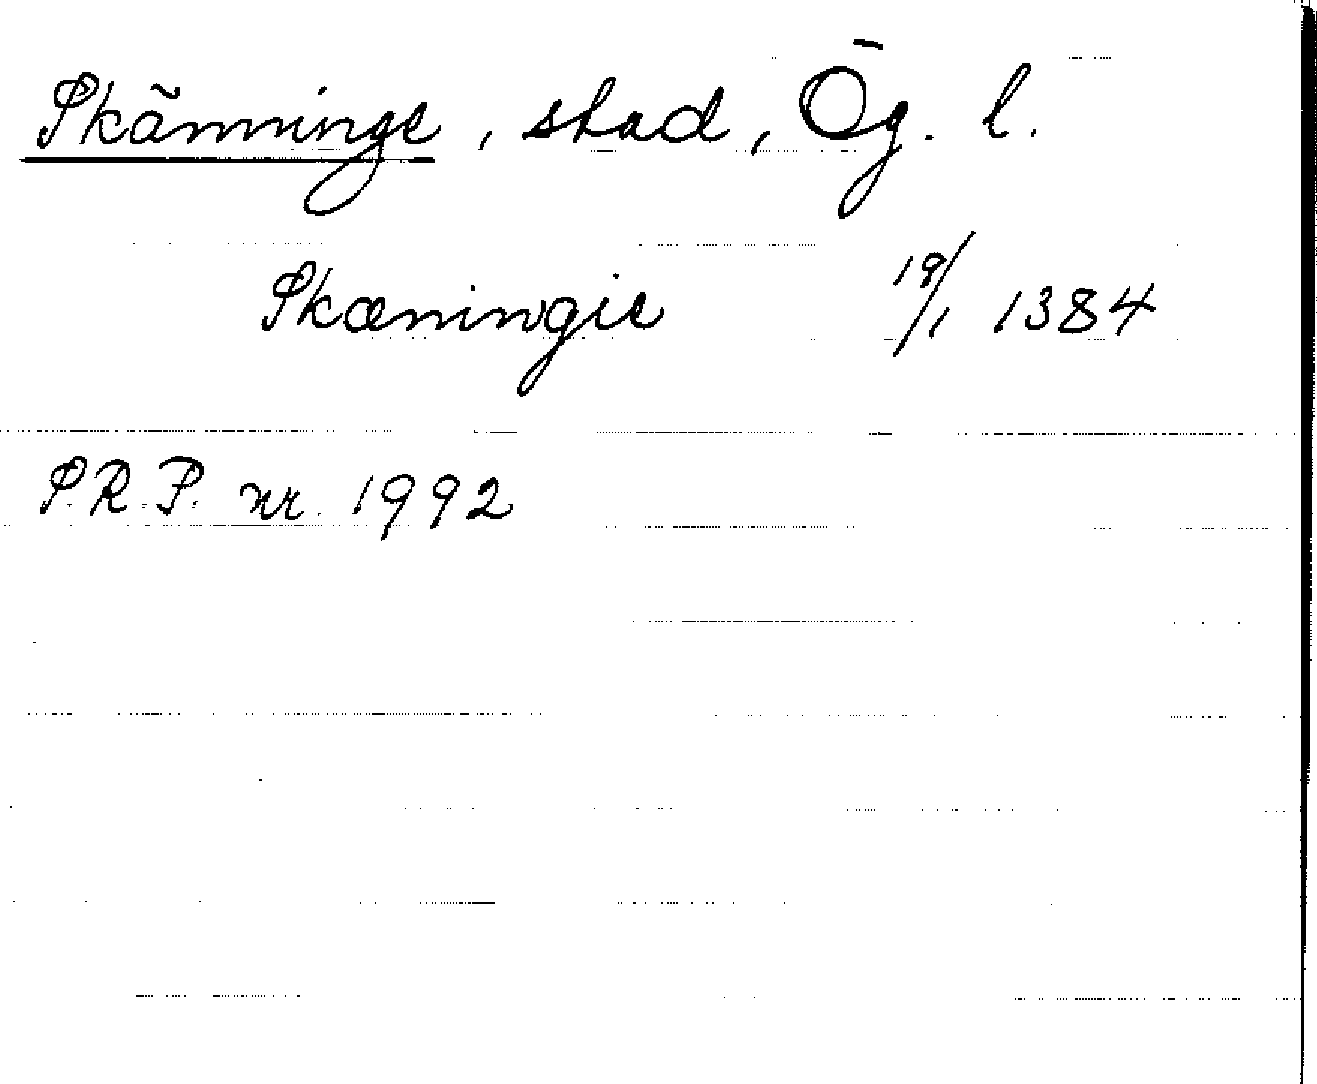 Skänninge, stad, Ög. l.
Skæningie 19/1 1384
S.R.P. nr. 1992